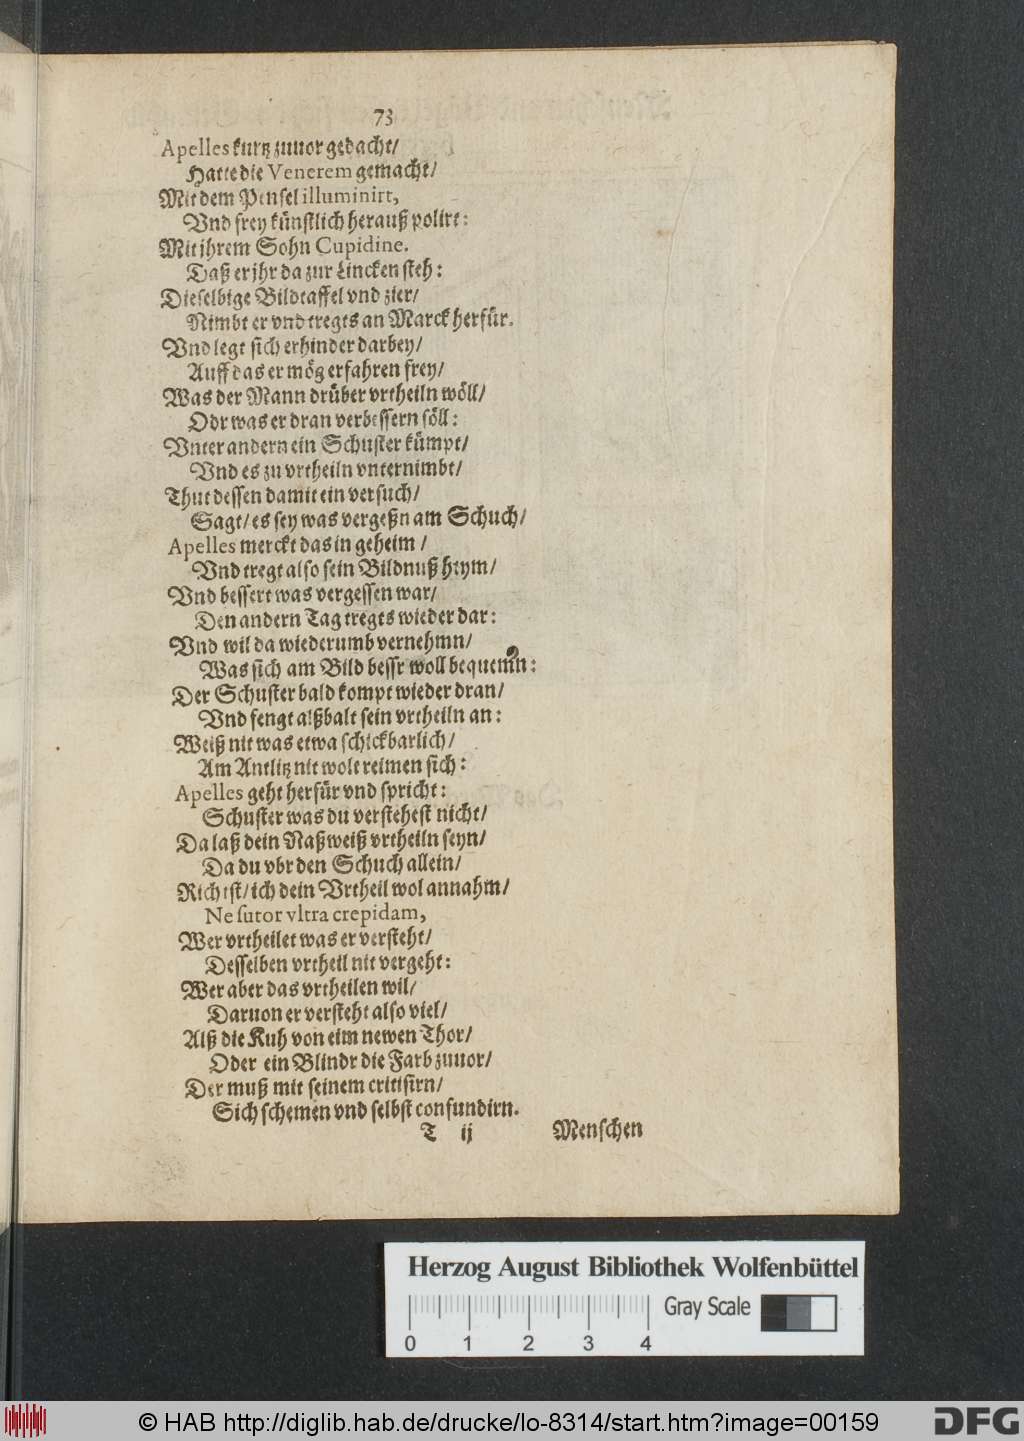 73
Apelles kurtz zuuor gedacht/
Hatte die Venerem gemacht/
Mit dem Pensel illuminirt,
Vnd frey künstlich herauß polirt:
Mit ihrem Sohn Cupidine.
Daß er jhr da zur Lincken steh:
Dieselbige Bildtaffel vnd zier/
Nimbt er vnd tregts an Marck herfür.
Vnd legt sich erhinder darbey/
Auff das er mög erfahren frey/
Was der Mann drüber vrtheiln wöll/
Odr was er dran verbessern söll:
Vnter andern ein Schuster kümpt/
Vnd es zu vrtheiln vnternimbt/
Thut dessen damit ein versuch/
Sagt/ es sey was vergeßn am Schuch/
Apelles merckt das in geheim /
Vnd tregt also sein Bildnuß heym/
Vnd bessert was vergessen war/
Den andern Tag tregts wieder dar:
Vnd wil da wiederumb vernehmn/
Was sich am Bild bessr woll bequemn:
Der Schuster bald kompt wieder dran/
Vnd fengt alßbalt sein vrtheiln an:
Weiß nit was etwa schickbarlich/
Am Antlitz nit wolt reimen sich:
Apelles geht herfür vnd spricht:
Schuster was du verstehest nicht/
Da laß dein Naßweiß vrtheiln seyn/
Da du vbr den Schuch allein/
Richtst/ ich dein Vrtheil wol annahm/
Ne sutor vltra crepidam,
Wer vrtheilet was er versteht/
Desselben vrtheil nit vergeht:
Wer aber das vrtheilen wil/
Daruon er versteht also viel/
Alß die Kuh von eim newen Thor/
Oder ein Blindr die Farb zuuor/
Der muß mit seinem critisirn/
Sich schemen vnd selbst confundirn.
T ij Menschen
Herzog August Bibliothek Wolfenbüttel
Gray Scale
0 1 2 3 4
© HAB http://diglib.hab.de/drucke/lo-8314/start.htm?image=00159
DFG